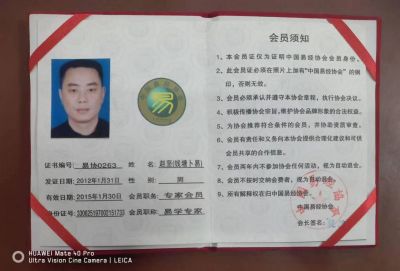 易
证书编号: 易协0263 赵贤(钱塘卜易)
发证日期: 2012年1月31日 性别: 男
有效日期: 2015年1月30日 会员职称: 专家会员
身份证号: 330825197002151733 会员职称: 易学专家
会员须知
1、本会员证仅为证明中国易经协会会员身份。
2、此会员证必须在照片上加有"中国易经协会"的钢
印,否则无效。
3、会员必须承认并遵守本协会章程,执行协会决议。
4、积极传播协会宗旨,维护协会品牌形象的合法权益。
5、为协会推荐符合条件的会员,并协助资质审查。
6、会员有责任和义务向本协会提供合理化建议和可供
会员共享的合作信息。
7、会员两年内不参加协会任何活动,视为自动退会。
8、会员不按时交纳会费者,视为自动退会。
9、所有解释权在归中国易经协会。
会长签名:
HUAWEI Mate 40 Pro
Ultra Vision Cine Camera | LEICA